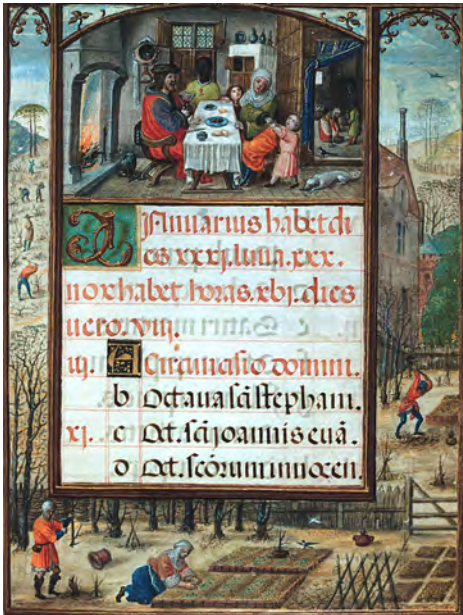 KL Januarius habet di
es xxxj. luna. xxx.
nox habet horas. xvj. dies
uero. viij.
iij. A Circuncisio domini.
b Octaua scī stephani.
xj. c Oct. scī joannis euā.
d Oct. scōrum innocen.